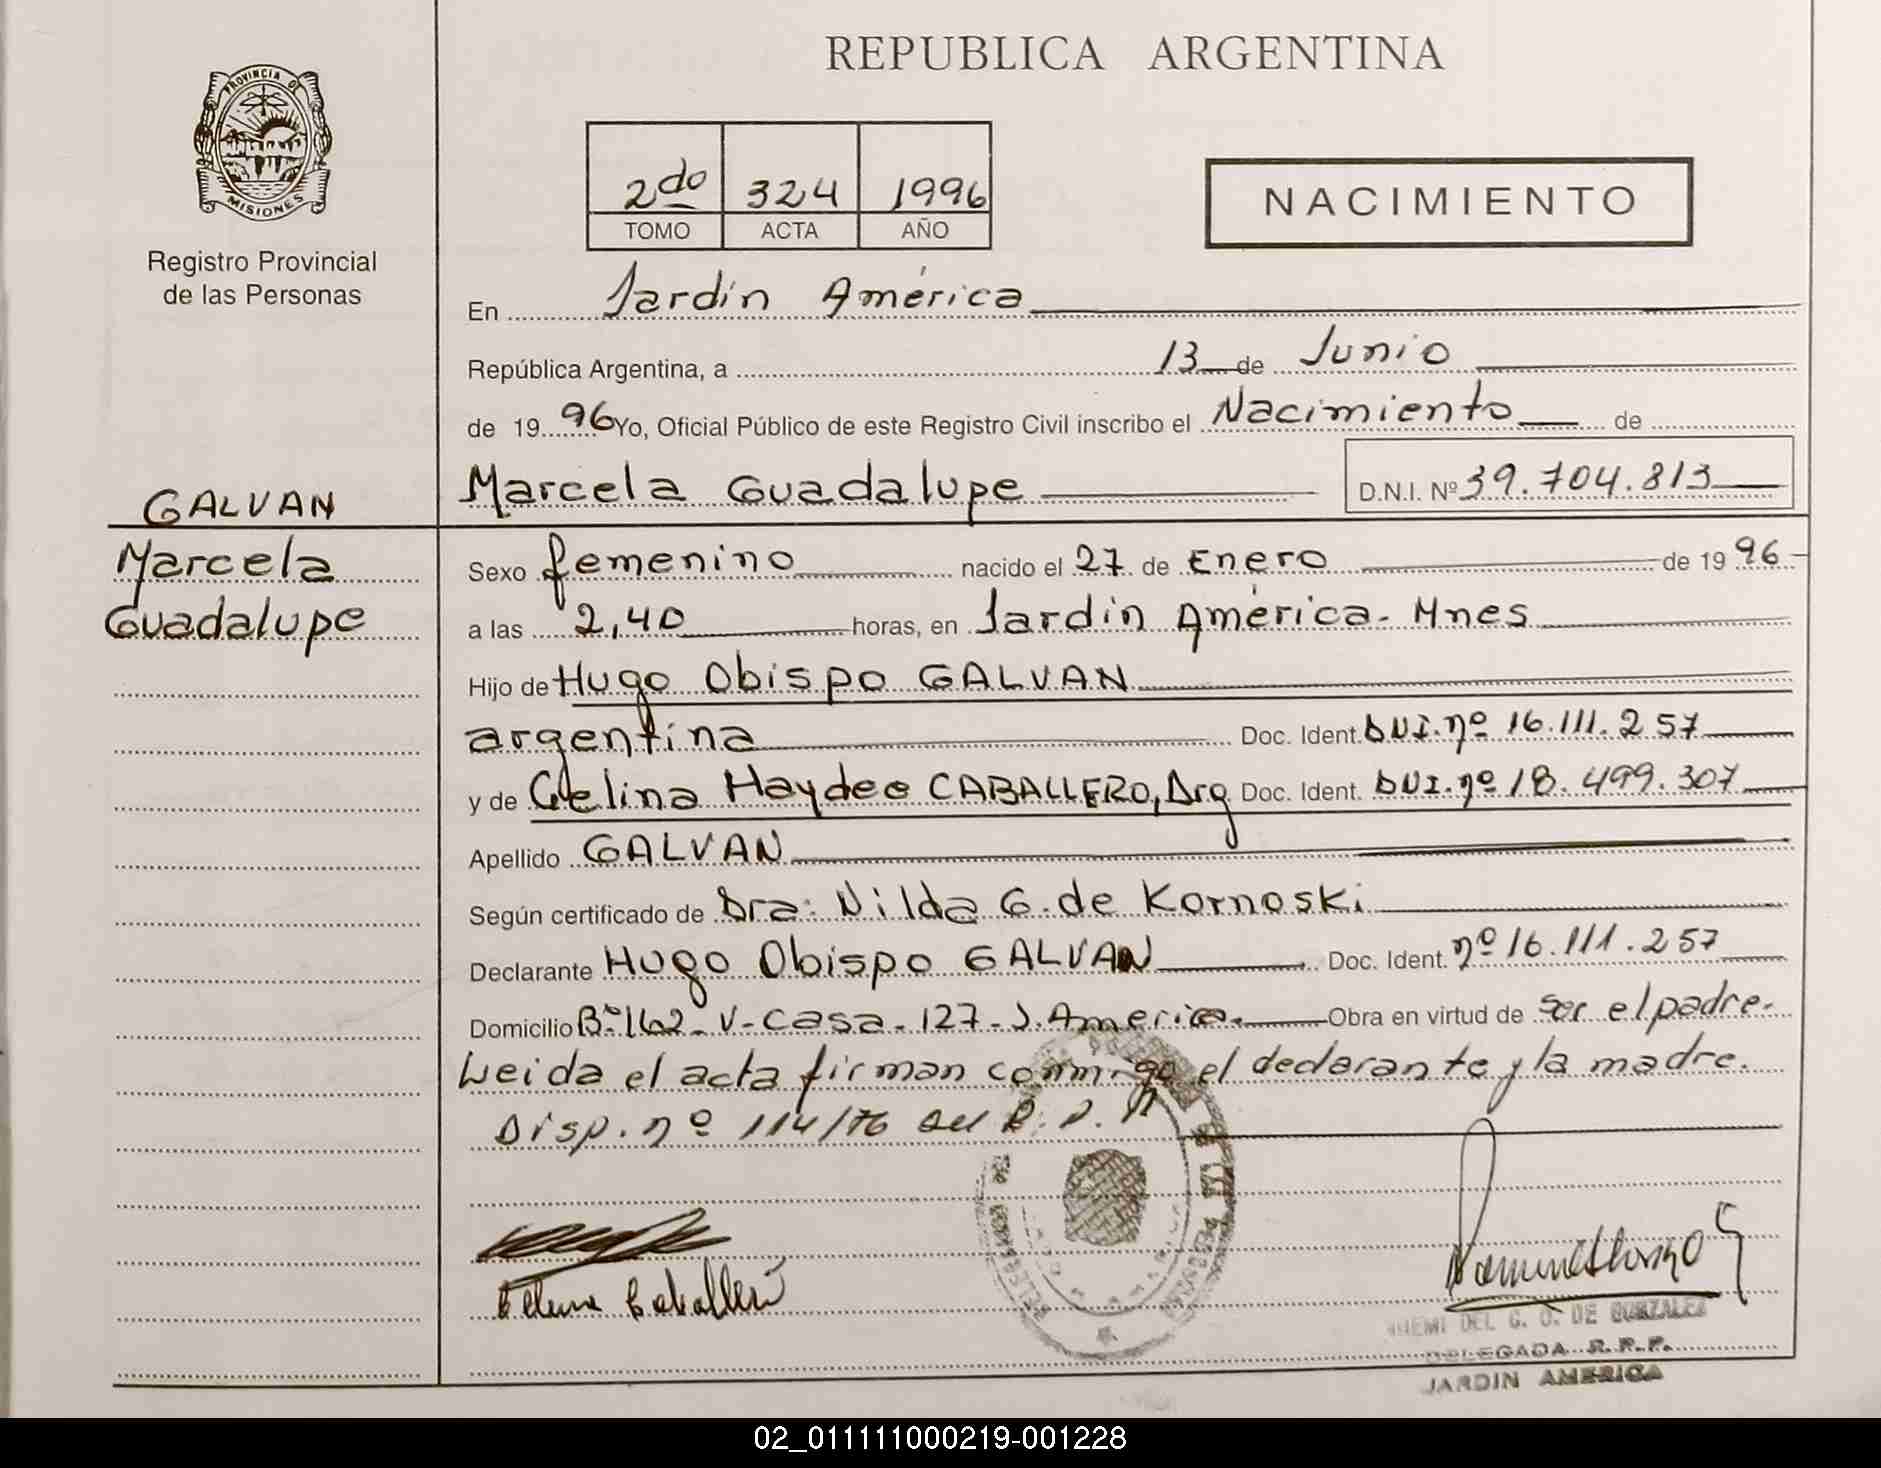 REPUBLICA ARGENTINA
PROVINCIA DE
MISIONES
Registro Provincial
de las Personas
2do 324 1996
TOMO ACTA AÑO
NACIMIENTO
En Jardín América
República Argentina, a 13 de Junio
de 1996 Yo, Oficial Público de este Registro Civil inscribo el Nacimiento de
Marcela Guadalupe D.N.I. Nº 39.704.813
GALVAN
Marcela
Guadalupe
Sexo femenino nacido el 27 de Enero de 1996
a las 2,40 horas, en Jardín América- Mnes
Hijo de Hugo Obispo GALVAN
argentina Doc. Ident. DNI. nº 16.111.257
y de Celina Haydee CABALLERO, Arg Doc. Ident. DNI. nº 18.499.307
Apellido GALVAN
Según certificado de Dra. Nilda G. de Kornoski
Declarante Hugo Obispo GALVAN Doc. Ident. nº 16.111.257
Domicilio Bº 162-V-Casa-127-J. America- Obra en virtud de ser el padre-
Leida el acta firman conmigo el declarante y la madre.
Disp. nº 114/76 del R.P.P
Caballero
DEL C. O. DE GONZALEZ
DELEGADA R.P.P.
JARDIN AMERICA
02_011111000219-001228